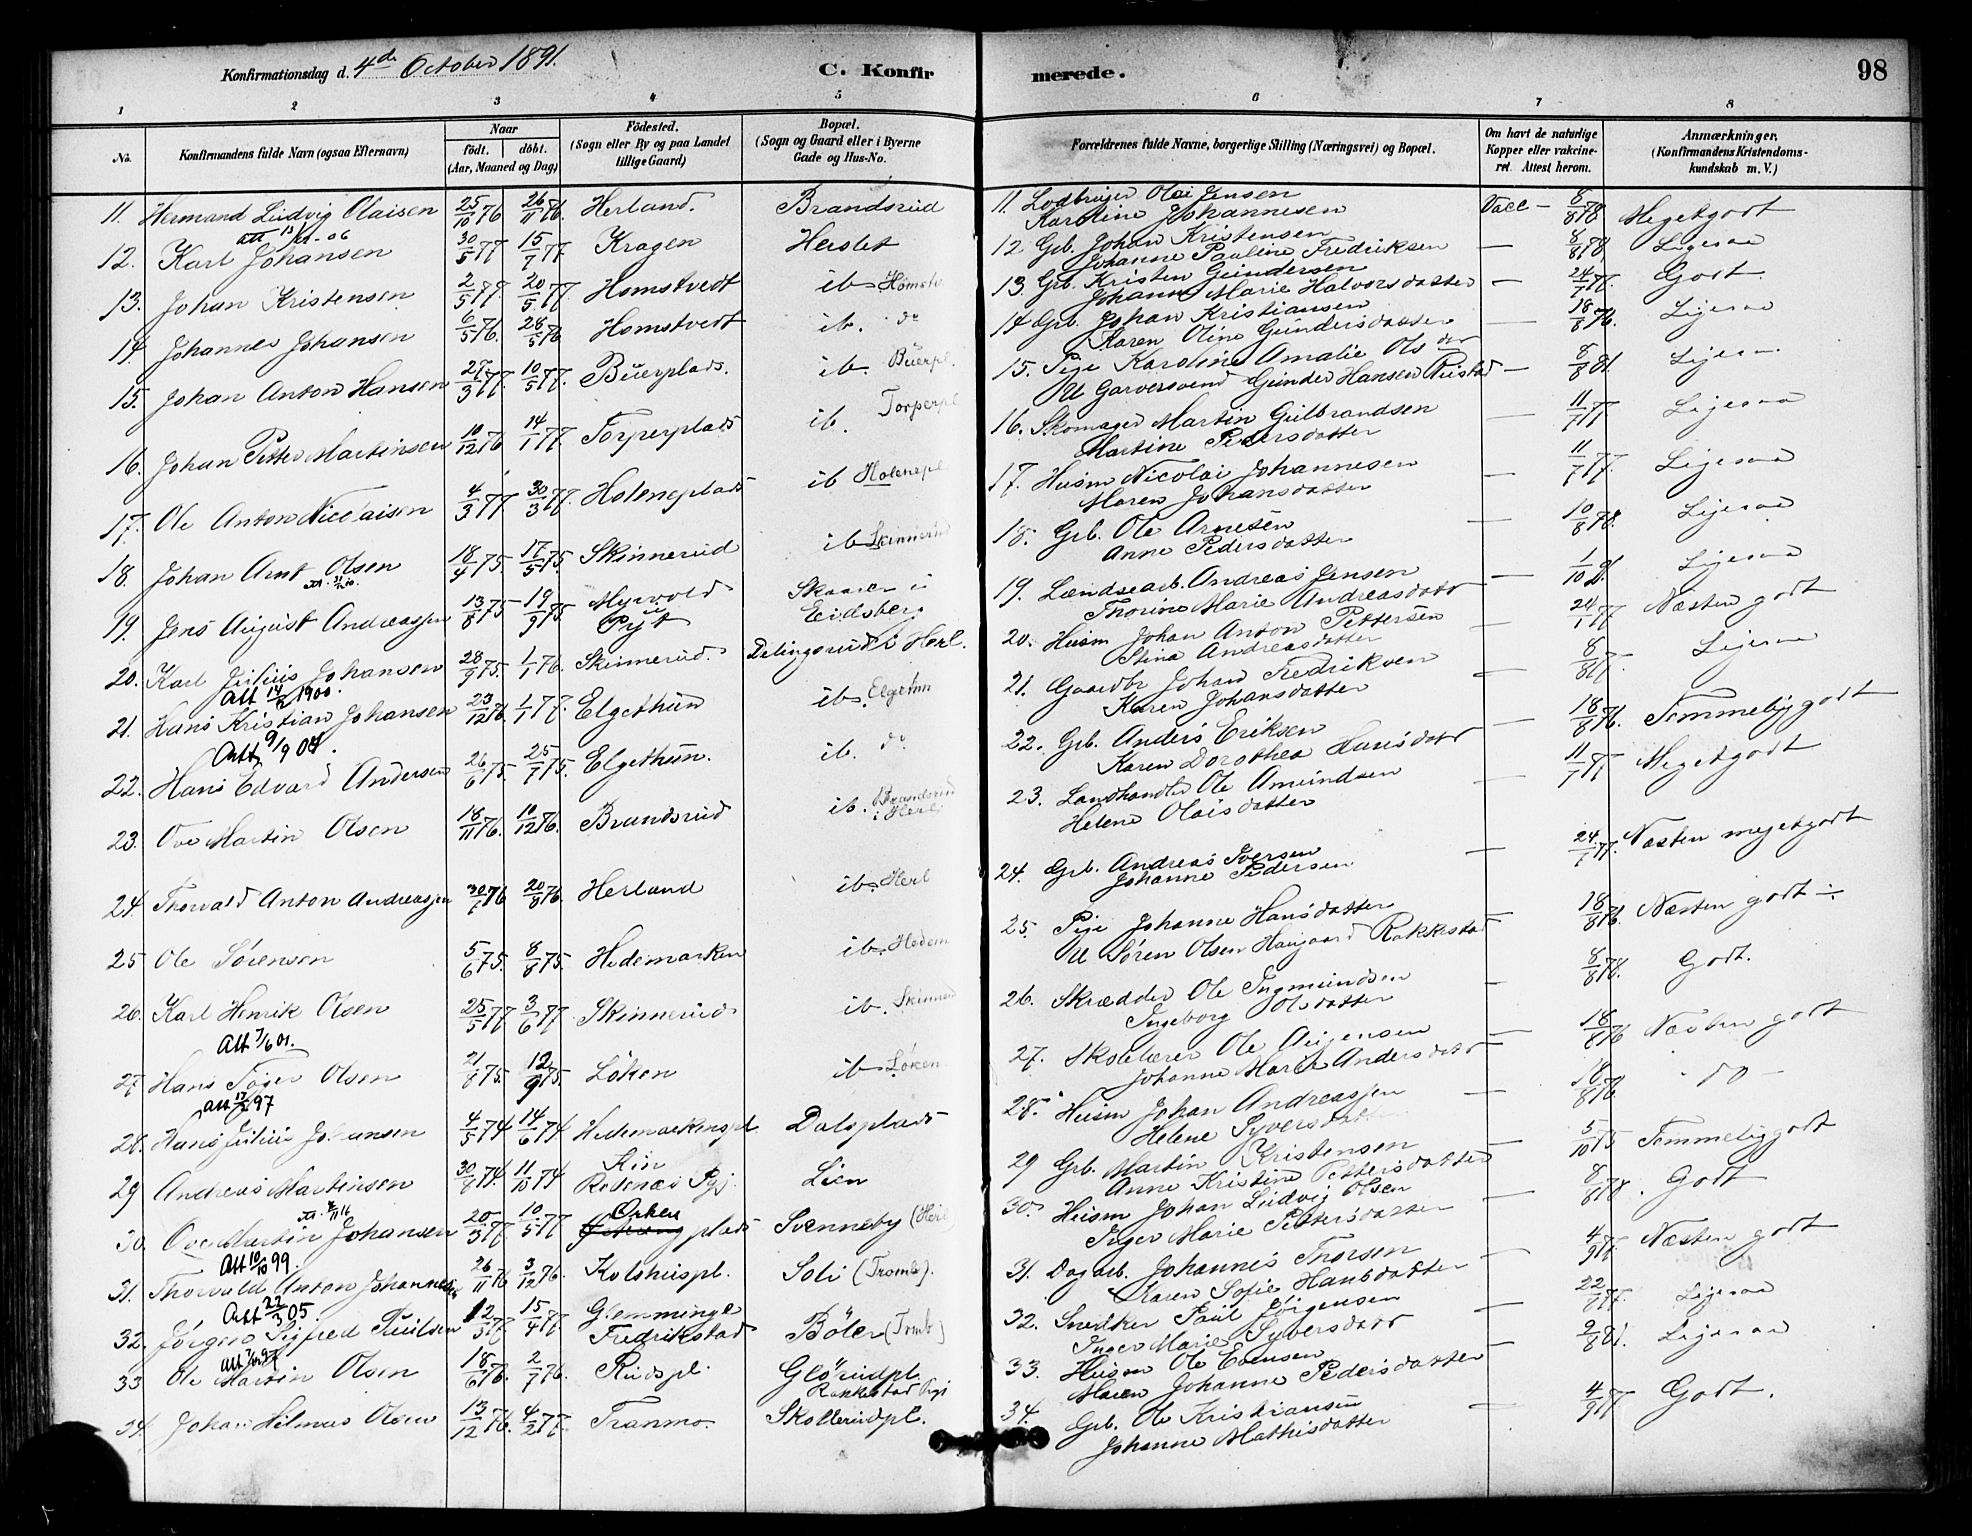 Konfirmationsdag d. 4de October 1891.
C. Konfirmerede.
98
1 2 3 4 5 6 7 8
No.
Konfirmandens fulde Navn (ogsaa Efternavn)
Naar
födt. döbt.
(Aar, Maaned og Dag)
Födested.
(Sogn eller By og paa Landet
tillige Gaard)
Bopæl.
(Sogn og Gaard eller i Byerne
Gade og Hus-No.
Forældrenes fulde Navne, borgerlige Stilling (Næringsvei) og Bopæl.
Om havt de naturlige
Kopper eller vakcine-
ret. Attest herom.
Anmærkninger.
(Konfirmandens Kristendoms-
kundskab m. V.)
11. Hermand Ludvig Olaisen 25/10 76 26/11 76. Herland. Brandsrud
11. Lodbruger Olai Jensen Vacc - 8/8 78 Megetgodt
Karoline Johannesen
12. Karl Johansen 30/5 77 15/7 77. Kragen Herslet
12 Grb. Johan Kristensen — 8/8 78. Ligesaa
Johanne Pauline Fredriksen
13. Johan Kristensen 2/5 77. 20/5 77. Homstvedt ib. Homstv
13. Grb. Kristen Gundersen — 24/7 77. Godt.
Johanne Marie Halvorsdatter
14. Johannes Johansen 6/5 76. 28/5 76 Homstvedt ib. do
14 Grb. Johan Kristiansen — 18/8 76. Ligesaa
Karen Oline Gundersdatter
15. Johan Anton Hansen 27/3 77. 10/5 77. Buerplads. ib. Buerpl.
15. Pige Karoline Amalie Ols dtr — 8/8 81. Ligesaa
U Garversvend Gunder Hansen
16. Johan Petter Martinsen 10/12 76 14/1 77. Torperplads ib. Torperpl
16. Skomager Martin Gulbrandsen — 11/7 77 Ligesaa
Martine Pedersdatter
17. Ole Anton Nicolaisen 4/3 77 30/3 77. Holeneplads ib Holenepl
17. Husm Nicolai Johannesen — 11/7 77. Ligesaa
Maren Johansdatter
18 Johan Arnt Olsen 18/4 75. 17/5 75. Skinnerud ib. Skinnerud
18. Grb. Ole Arnesen — 10/8 78. Ligesaa
Anne Pedersdatter
19. Jens August Andreassen 13/8 75 19/9 75. Myrvold Skaaren i
Eidsberg
19. Lændsearb. Andreas Jensen — Ligesaa
Thorine Marie Andreasdatr
20. Karl Julius Johansen 28/9 75. 1/1 76. Skinnerud. Delingsrud i Herl.
20. Husm Johan Anton Pettersen — 24/1 77 Næsten godt
Stina Andreasdatter
Att 14/2 1900.
21. Hans Kristian Johansen 23/12 76 1/1 77. Elgethun ib. Elgethun
21. Gaardbr Johan Fredriksen — Ligesaa
Karen Johansdatter
Att 9/9 04.
22. Hans Edvard Andersen 26/6 75. 25/7 75. Elgethun. ib. do
22. Grb. Anders Eriksen — 18/8 76. Temmelig godt
Karen Dorothea Hansdatr
23. Ove Martin Olsen 18/11 76. 10/12 76. Brandsrud ib. Brandsrud
i Herl
23. Landhandler Ole Amundsen — 11/7 77 Megetgodt
Helene Olaisdatter
24 Thorvald Anton Andreassen 20/8 76. Herland ib. Herl
24. Grb. Andreas Iversen — 24/1 77. Næsten megetgodt
Johanne Pedersen
25 Ole Sørensen 5/6 75. 8/8 75. Hedemarken ib. Hedem
25. Pige Johanne Hansdatter — 18/8 76. Næsten godt ÷
U Søren Olsen Haugaard Rakkestad
26. Karl Henrik Olsen 25/5 77 3/6 77. Skinnerud ib. Skinnerud
26. Skrædder Ole Ingmundsen — 8/8 78. Godt.
Ingeborg Olsdatter
Att 7/6 01.
27 Hans Olsen 21/8 75. 12/9 75. Löken ib Löken
27. Skolelærer Ole — 18/8 76 Næsten godt
Johanne Marie Andersdatr
Att 97
28. Hans Julius Johansen 4/5 74 14/6 74 Hedemarkenspl. Dalsplads
28. Husm Johan Andreassen — 18/8 76 - do -
Helene Syversdatter
29 Andreas Martinsen 30/8 74. 11/10 74 Kin
Rødenæs Pgj. Lien
29 Grb. Martin Kristensen — 5/10 75 Temmeliggodt
Anne Kristine Pettersdatter
30. Ove Martin Johansen 20/3 77 10/5 77 Orken plads Svenneby (Herl
30. Husm Johan Ludvig Olsen — 8/8 78. Godt
Inger Marie Pettersdatter
Att 10/10 99.
31. Thorvald Anton Johannessen 26/11 76 3/12 76. Kolshuspl. Soli (Tromb).
31. Dagarb. Johannes Thorsen — 4/9 77 Næsten godt
Karen Sofie Hansdatter
Att 22/3 05.
32. Jörgen Sigfred Paulsen 12/3 77. 15/4 77. Glemminge
Fredrikstad Böler (Tromb)
32. Snedker Paul Jörgensen — 22/8 77. Ligesaa
Inger Marie Syversdatr
33 Ole Martin Olsen 18/6 76. 2/7 76. Rudspl. Glösrudpl.
Rakkestad Pgj
33. Husm Ole Evensen — 2/8 81. Ligesaa
Maren Johanne Pedersdatter
34. Johan Hilmar Olsen 13/12 76. 4/2 77. Tranmo. Skollerudpl.
34. Grb. Ole Kristiansen — 4/9 77 Godt.
Johanne Mathisdatter